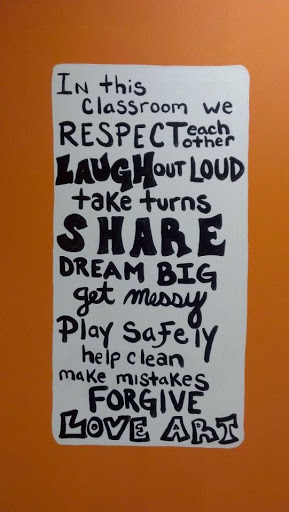 In this
classroom we
RESPECT each other
LAUGH OUT LOUD
take turns
SHARE
DREAM BIG
get messy
Play Safely
help clean
make mistakes
FORGIVE
LOVE ART